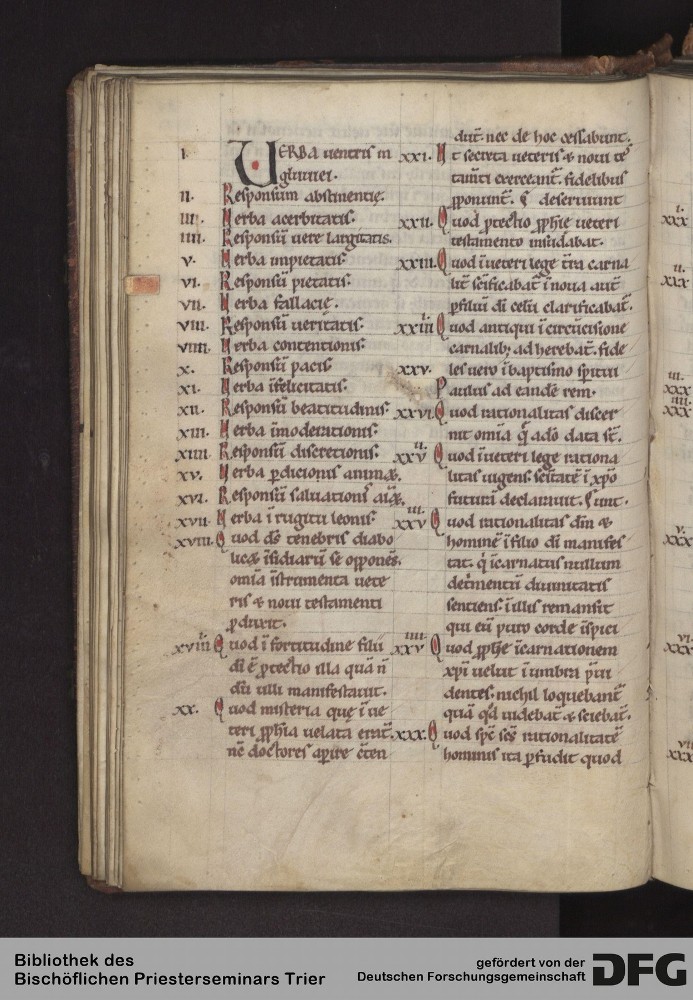 I. VERBA uentris in
gluuiei.
II. Responsum abstinentię.
III. Verba acerbitatis.
IIII. Responsū uere largitatis.
V. Verba impietatis.
VI. Responsū pietatis.
VII. Verba fallacię.
VIII. Responsū ueritatis.
VIIII. Verba contentionis.
X. Responsū pacis.
XI. Verba īfelicitatis.
XII. Responsū beatitudinis.
XIII. Verba īmoderationis.
XIIII. Responsū discretionis.
XV. Verba ꝑdicionis animæ.
XVI. Responsū saluationis aīæ.
XVII. Verba ī rugitu leonis.
XVIII. Quod ds̄ tenebris diabo
licæ īsidiarū se opponēs.
omīa īstrumenta uete
ris & noui testamenti
ꝓduxit.
XVIIII. Quod ī fortitudine filii
dī ē ꝓtectio illa quā n̄
dū ulli manifestauit.
XX. Quod misteria que ī ue
teri ꝓph̄ia uelata erāt.
nē doctores aꝑire
dūt. nec de hoc cessabunt.
XXI. Vt secreta ueteris & noui tes
tam̄ti exerceant. fidelibus
ꝓponunt. deseruiunt
XXII. Quod ꝓtectio ꝓph̄ie ueteri
testamento insudabat.
XXIII. Quod ī ueteri lege tr̄a carna
lit̄ sc̄ificabat̄ ī noua aut̄
ꝑ filiū dī celū clarificabat̄.
XXIIII. Quod antiqui ī circūcisione
carnalib; adherebāt. fide
XXV. les uero ī baptismo spiritui
Paulus ad eandē rem.
XXVI. Quod rationalitas discer
nit omīa q̄ ad data st̄.
XXVII. Quod ī ueteri lege rationa
litas uigens. sc̄itatē ī xp̄o
futurā declarauit.
XXVIII. Quod rationalitas dīn &
hominē ī filio dī manifes
tat. q̄ īcarnatus nullum
det̄mentū diuinitatis
sentiens. ī illis remansit
qui eū puro corde īspici
XXVIIII. Quod ꝓph̄e īcarnationem
xp̄i uelut ī umbra p̄ui
dentes. nichil loquebant̄
quā qd̄ uidebāt & sciebāt.
XXX. Quod sp̄c sc̄s rationalitatē
hominis ita ꝑfudit quod
I.
XXX
II.
XXX
III.
XXX
IIII.
XXX
V.
XXX
VI.
XXX
VII
XXX
Bibliothek des
Bischöflichen Priesterseminars Trier
gefördert von der
Deutschen Forschungsgemeinschaft
DFG